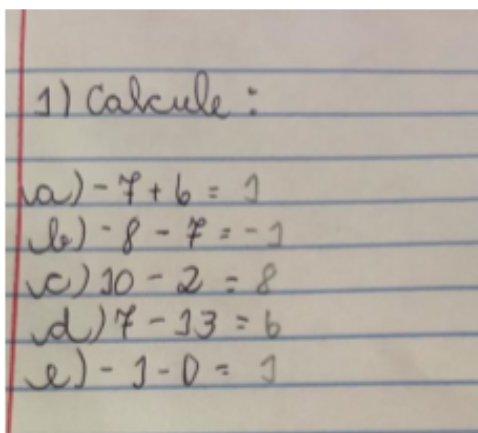 1) Calcule:
a) - 7 + 6 = 1
b) - 8 - 7 = - 1
c) 10 - 2 = 8
d) 7 - 13 = 6
e) - 1 - 0 = 1